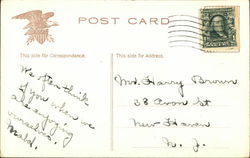 POST CARD
This side for Correspondence.
This side for Address.
We often think
of you when we
are enjoying
ourselves.
Mald.
Mr. Harry Brown
38 Avon St
New Haven
N. J.